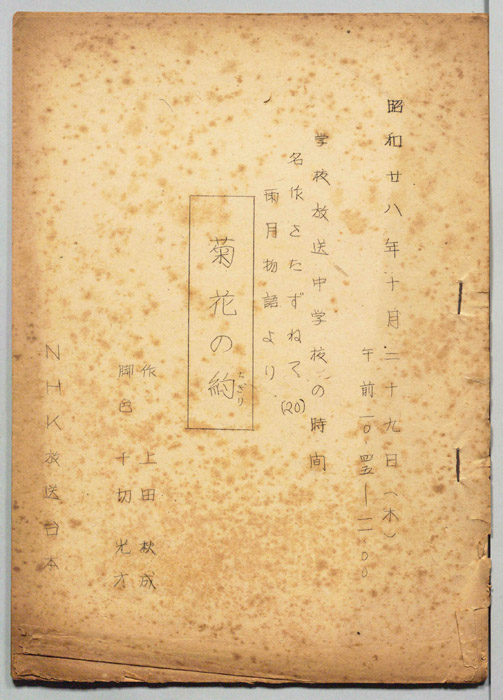 昭和廿八年十月二十九日(木)
午前一〇・四五―一一・〇〇
学校放送中学校の時間
名作をたずねて(20)
雨月物語より
菊花の約
ちぎり
作 上田秋成
脚色 千切光才
NHK放送台本